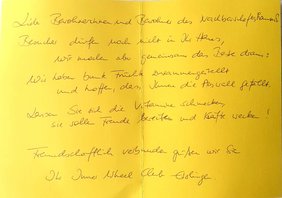 Liebe Bewohnerinnen und Bewohner des
Besucher dürfen noch nicht in Ihr Haus,
wir machen aber gemeinsam das Beste draus:
Wir haben bunt Früchte zusammengestellt
und hoffen, dass Ihnen die Auswahl gefällt.
Lassen Sie sich die Vitamine schmecken,
sie sollen Freude bereiten und Kräfte wecken!
Freundschaftlich verbunden grüßen wir Sie
Ihr Inner Wheel Club